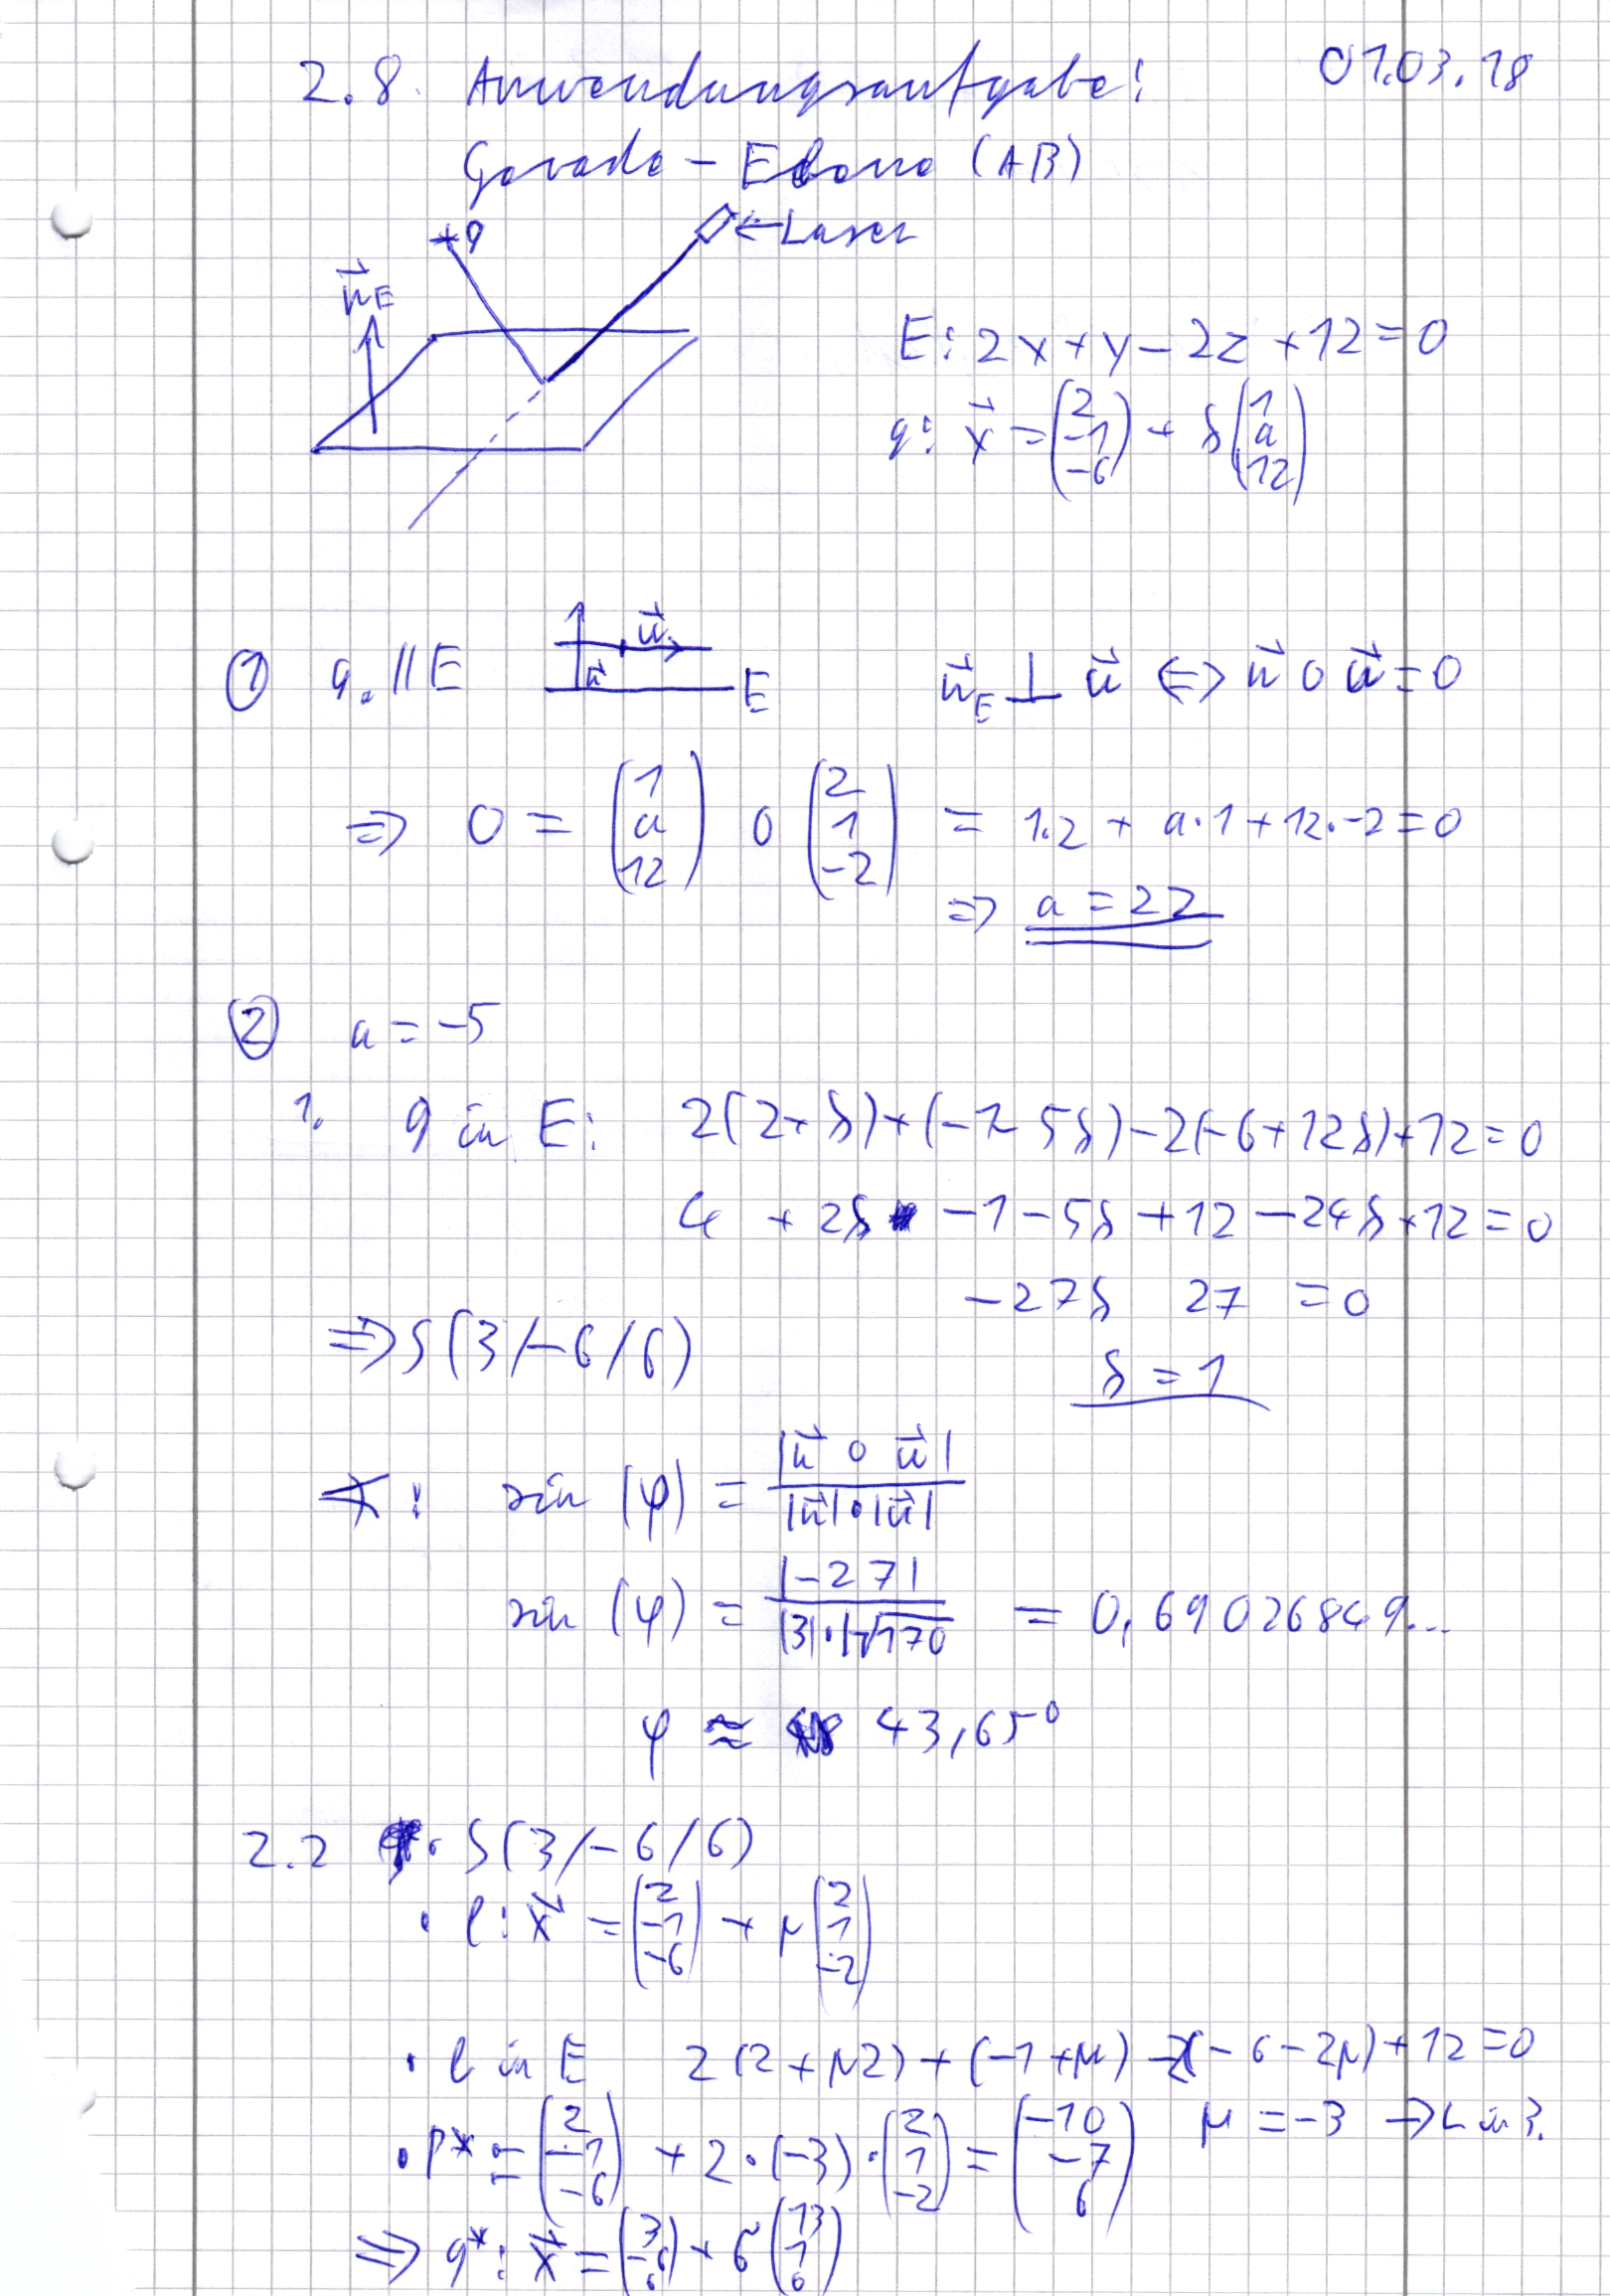 2.8. Anwendungsaufgabe: 01.03.18
Gerade – Ebene (AB)
g ← Laser
n⃗_E
E: 2x + y − 2z + 12 = 0
g: x⃗ = (2 / −1 / −6) + s (1 / a / 12)
① g ∥ E n⃗ u⃗ E n⃗_E ⊥ u⃗ ⟺ n⃗ ∘ u⃗ = 0
⇒ 0 = (1 / a / 12) ∘ (2 / 1 / −2) = 1·2 + a·1 + 12·−2 = 0
⇒ a = 22
② a = −5
1. g in E: 2(2+s)+(−1−5s)−2(−6+12s)+12=0
4 + 2s −1 −5s +12 −24s +12 = 0
−27s 27 = 0
⇒ S(3/−6/6)
s = 1
∢: sin (φ) = |n⃗ ∘ u⃗| / |n⃗|·|u⃗|
sin (φ) = |−27| / |3|·|√170 = 0,69026849...
φ ≈ 43,65°
2.2 · S(3/−6/6)
· l: x⃗ = (2 / −1 / −6) + μ (2 / 1 / −2)
· l in E 2(2+μ2)+(−1+μ) −2(−6−2μ)+12=0
μ = −3 → L in 3.
· P* = (2 / −1 / −6) + 2·(−3)·(2 / 1 / −2) = (−10 / −7 / 6)
⇒ g*: x⃗ = (3 / −6 / 6) + σ (13 / 1 / 6)